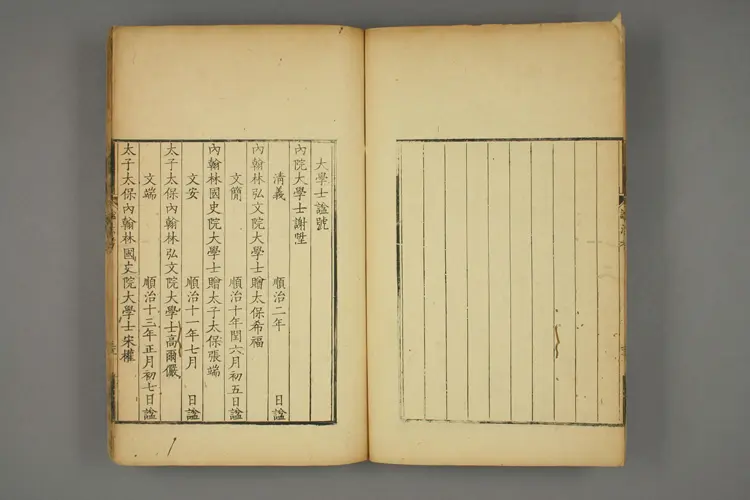 大學士諡號
內院大學士謝陞
清義 順治二年 日諡
內翰林弘文院大學士贈太保希福
文簡 順治十年閏六月初五日諡
內翰林國史院大學士贈太子太保張端
文安 順治十一年七月 日諡
太子太保內翰林弘文院大學士高爾儼
文端 順治十三年正月初七日諡
太子太保內翰林國史院大學士宋權